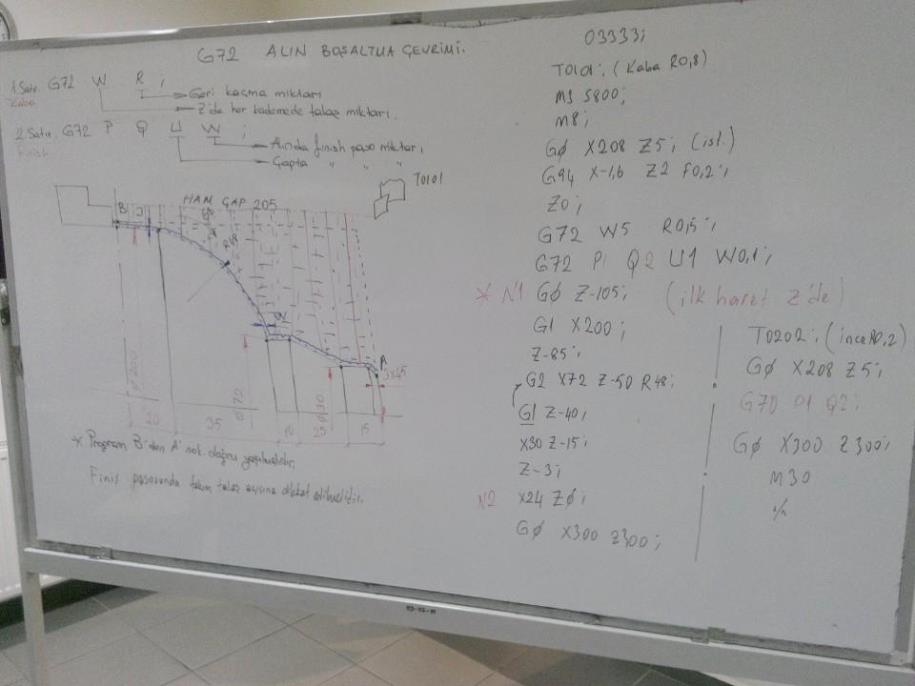 G72 ALIN BOŞALTMA ÇEVRİMİ.
1.Satır. G72 W R ;
Kaba
Geri kaçma miktarı
Z'de her kademede talaş miktarı.
2.Satır. G72 P Q U W ;
Finish
Alında finish paso miktarı
Çapta " " "
T0101
HAM ÇAP 205
B
R48
W
A
3x45
Ø200
Ø72
Ø30
20
35
10
25
15
* Program B'den A' nok. doğru yazılmalıdır,
Finiş pasosunda takım talaş açısına dikkat edilmelidir.
O3333;
T0101; (Kaba R0,8)
M3 S800;
M8;
GØ X208 Z5; (ist.)
G94 X-1,6 Z2 F0,2;
Z0;
G72 W5 R0,5;
G72 P1 Q2 U1 W0,1;
* N1 GØ Z-105; (ilk haret Z'de)
G1 X200;
Z-85;
G2 X72 Z-50 R48;
G1 Z-40;
X30 Z-15;
Z-3;
N2 X24 ZØ;
GØ X300 Z300;
T0202; (ince R0,2)
GØ X208 Z5;
G70 P1 Q2;
GØ X300 Z300;
M30